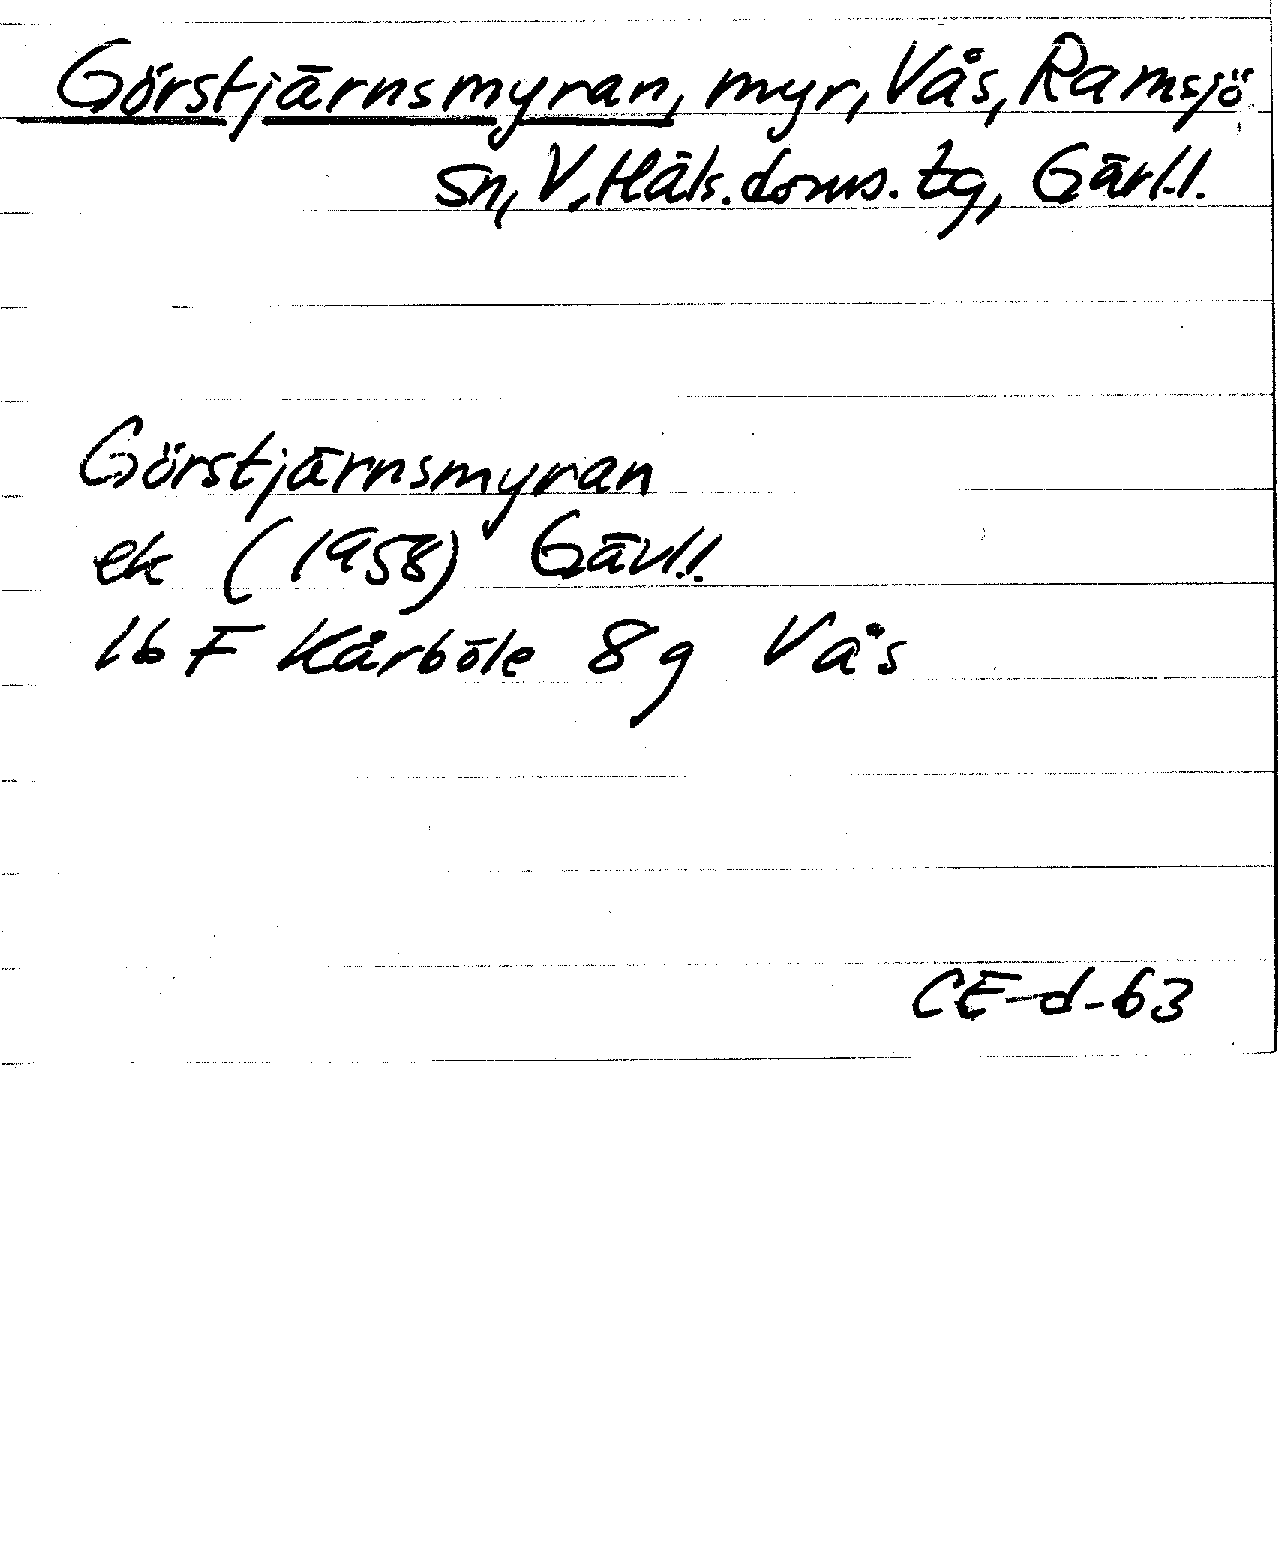 Görstjärnsmyran, myr, Vås, Ramsjö
sn, V. Häls. doms. tg, Gävl.l.
Görstjärnsmyran
ek (1958) Gävl.l.
16 F Kårböle 8g Vås
CE-d-63